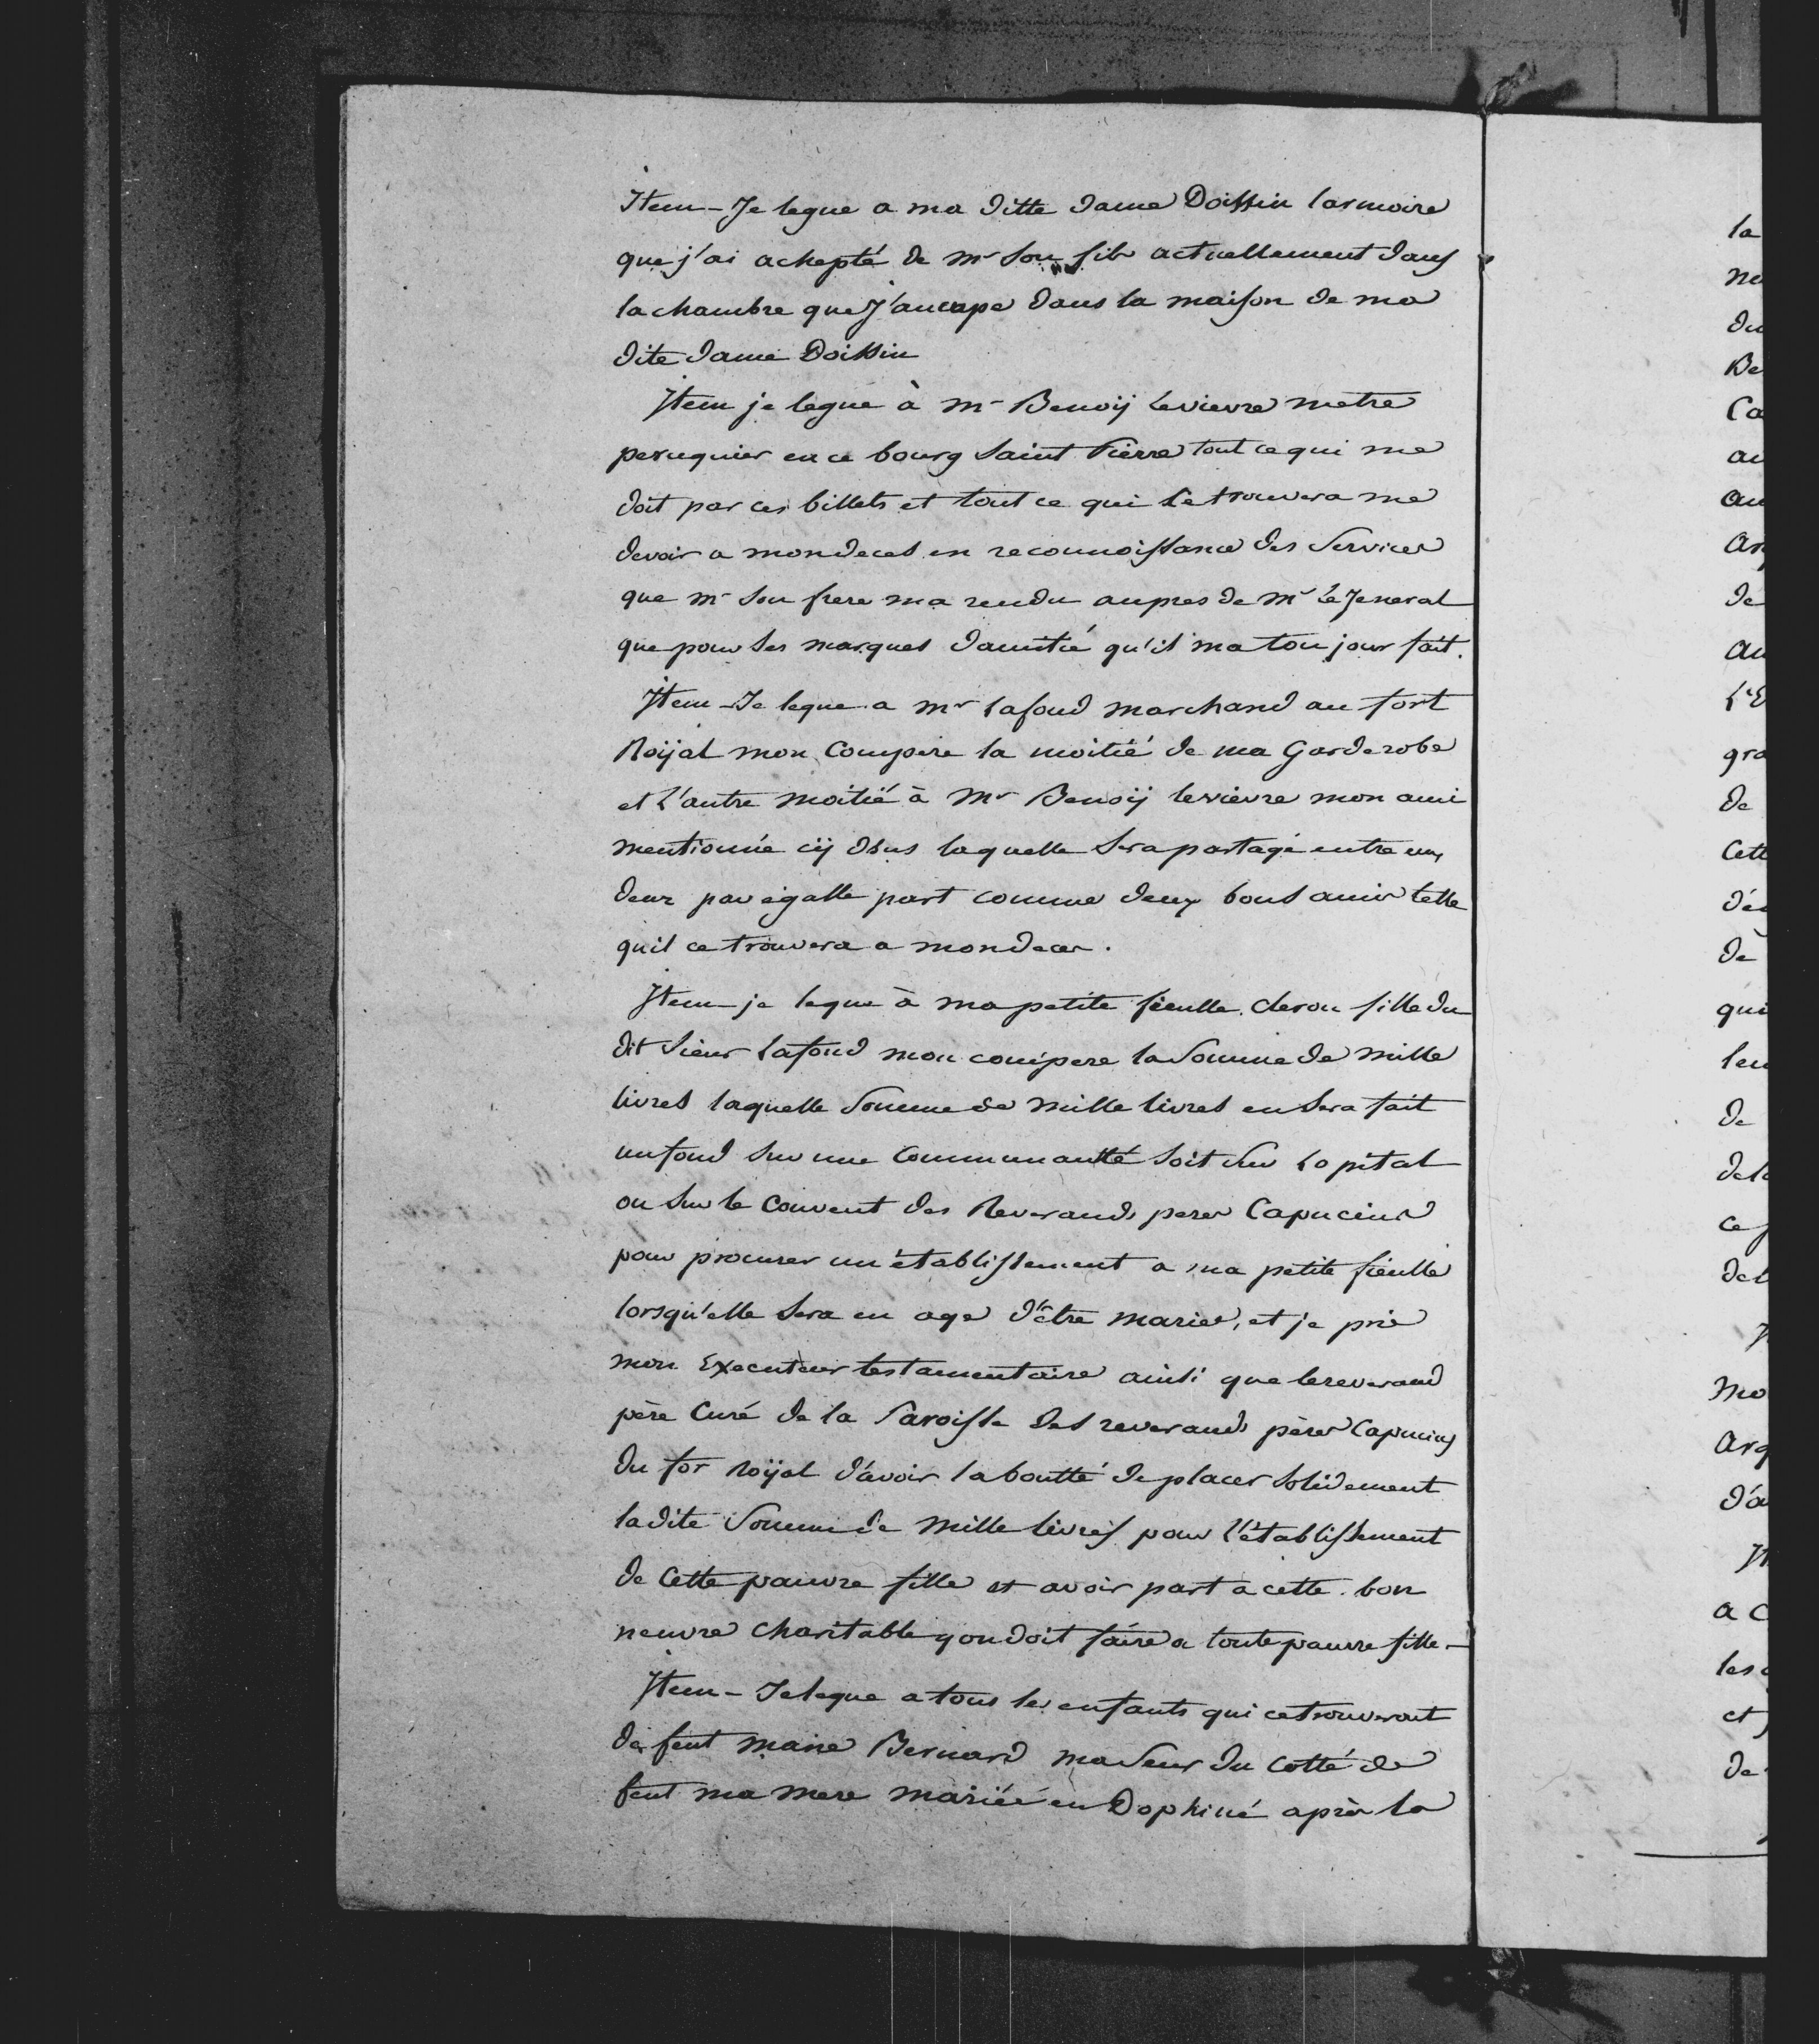 Item - Je legue a ma ditte dame Doissin larmoire
que j'ai achepté de mr son fils actuellement dans
la chambre que J'aucupe dans la maison de ma
dite dame Doissin
Item je legue à mr Benoij Levievre metre
peruquier en ce bourg Saint Pierre tout ce qui me
doit par ces billets et tout ce qui se trouvera me
devoir a mon deces en reconnoissance des Services
que mr son frere ma rendu aupres de mr Le Jeneral
que pour les marques damitié qu'il ma toujour fait.
Item - Je legue a mr Lafond marchand au fort
Roijal mon Compere la moitié de ma Garderobe
et L'autre moitié à mr Benoij levievre mon ami
mentionnée cij dsus laquelle Sera partagé entre eux
deux par égalle part comme deux bons amis telle
quil ce trouvera a mon deces.
Item je legue à ma petite fieulle fille du
dit Sieur Lafond mon compere la Somme de mille
livres laquelle Somme de mille livres en Sera fait
un fond sur une Communautté soit sur Lopital
ou sur le Couvent des Reverands peres Capucins
pour procurer un établissement a ma petite fieulle
lorsqu'elle Sera en age d'être mariée, et je prie
mon Executeur testamentaire ainsi que le reverand
père Curé de la Paroisse des reverands pères Capucins
du for Roijal d'avoir la boutté de placer Solidement
la dite Somme de mille livres pour l'établissement
de Cette pauvre fille et avoir part a cette bon
neuvre Charitable qon doit faire a toute pauvre fille -
Item - Je legue a tous les enfants qui ce trouveront
de feut marie Bernard ma Seur du Cotté de
feut ma mere mariéé en Dophiné après la
la
du
Be
Ca
au
au
de
au
L'E
gra
de
Cett
de
qui
leu
de
de la
ce
del
mo
Arg
d'a
a C
les
et
de